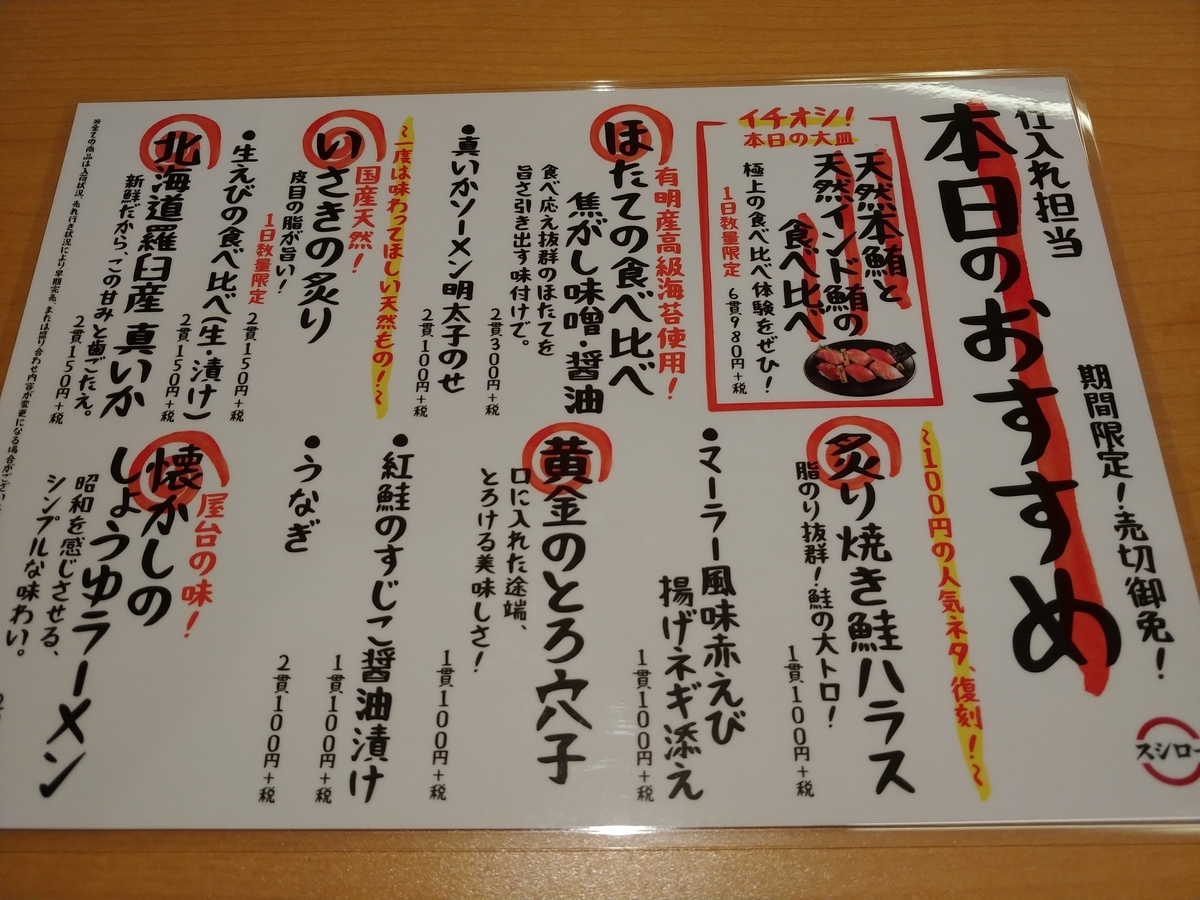 仕入れ担当
本日のおすすめ
期間限定！売切御免！
スシロー
イチオシ！
本日の大皿
天然本鮪と
天然インド鮪の
食べ比べ
極上の食べ比べ体験をぜひ！
1日数量限定 6貫980円+税
有明産高級海苔使用！
ほたての食べ比べ
焦がし味噌・醤油
食べ応え抜群のほたてを
旨さ引き出す味付けで。
2貫300円+税
●真いかソーメン明太子のせ
2貫100円+税
～一度は味わってほしい天然もの！～
国産天然！
いさきの炙り
皮目の脂が旨い！
1日数量限定 2貫150円+税
●生えびの食べ比べ(生・漬け)
2貫150円+税
北海道羅臼産 真いか
新鮮だから、この甘みと歯ごたえ。
2貫150円+税
～100円の人気ネタ、復刻！～
炙り焼き鮭ハラス
脂のり抜群！鮭の大トロ！
1貫100円+税
●マーラー風味赤えび
揚げネギ添え
1貫100円+税
黄金のとろ穴子
口に入れた途端、
とろける美味しさ！
1貫100円+税
●紅鮭のすじこ醤油漬け
1貫100円+税
●うなぎ
2貫100円+税
屋台の味！
懐かしの
しょうゆラーメン
昭和を感じさせる、
シンプルな味わい。
※全ての商品は入荷状況、売れ行き状況により早期完売、または盛り合わせ内容が変更になる場合がござい